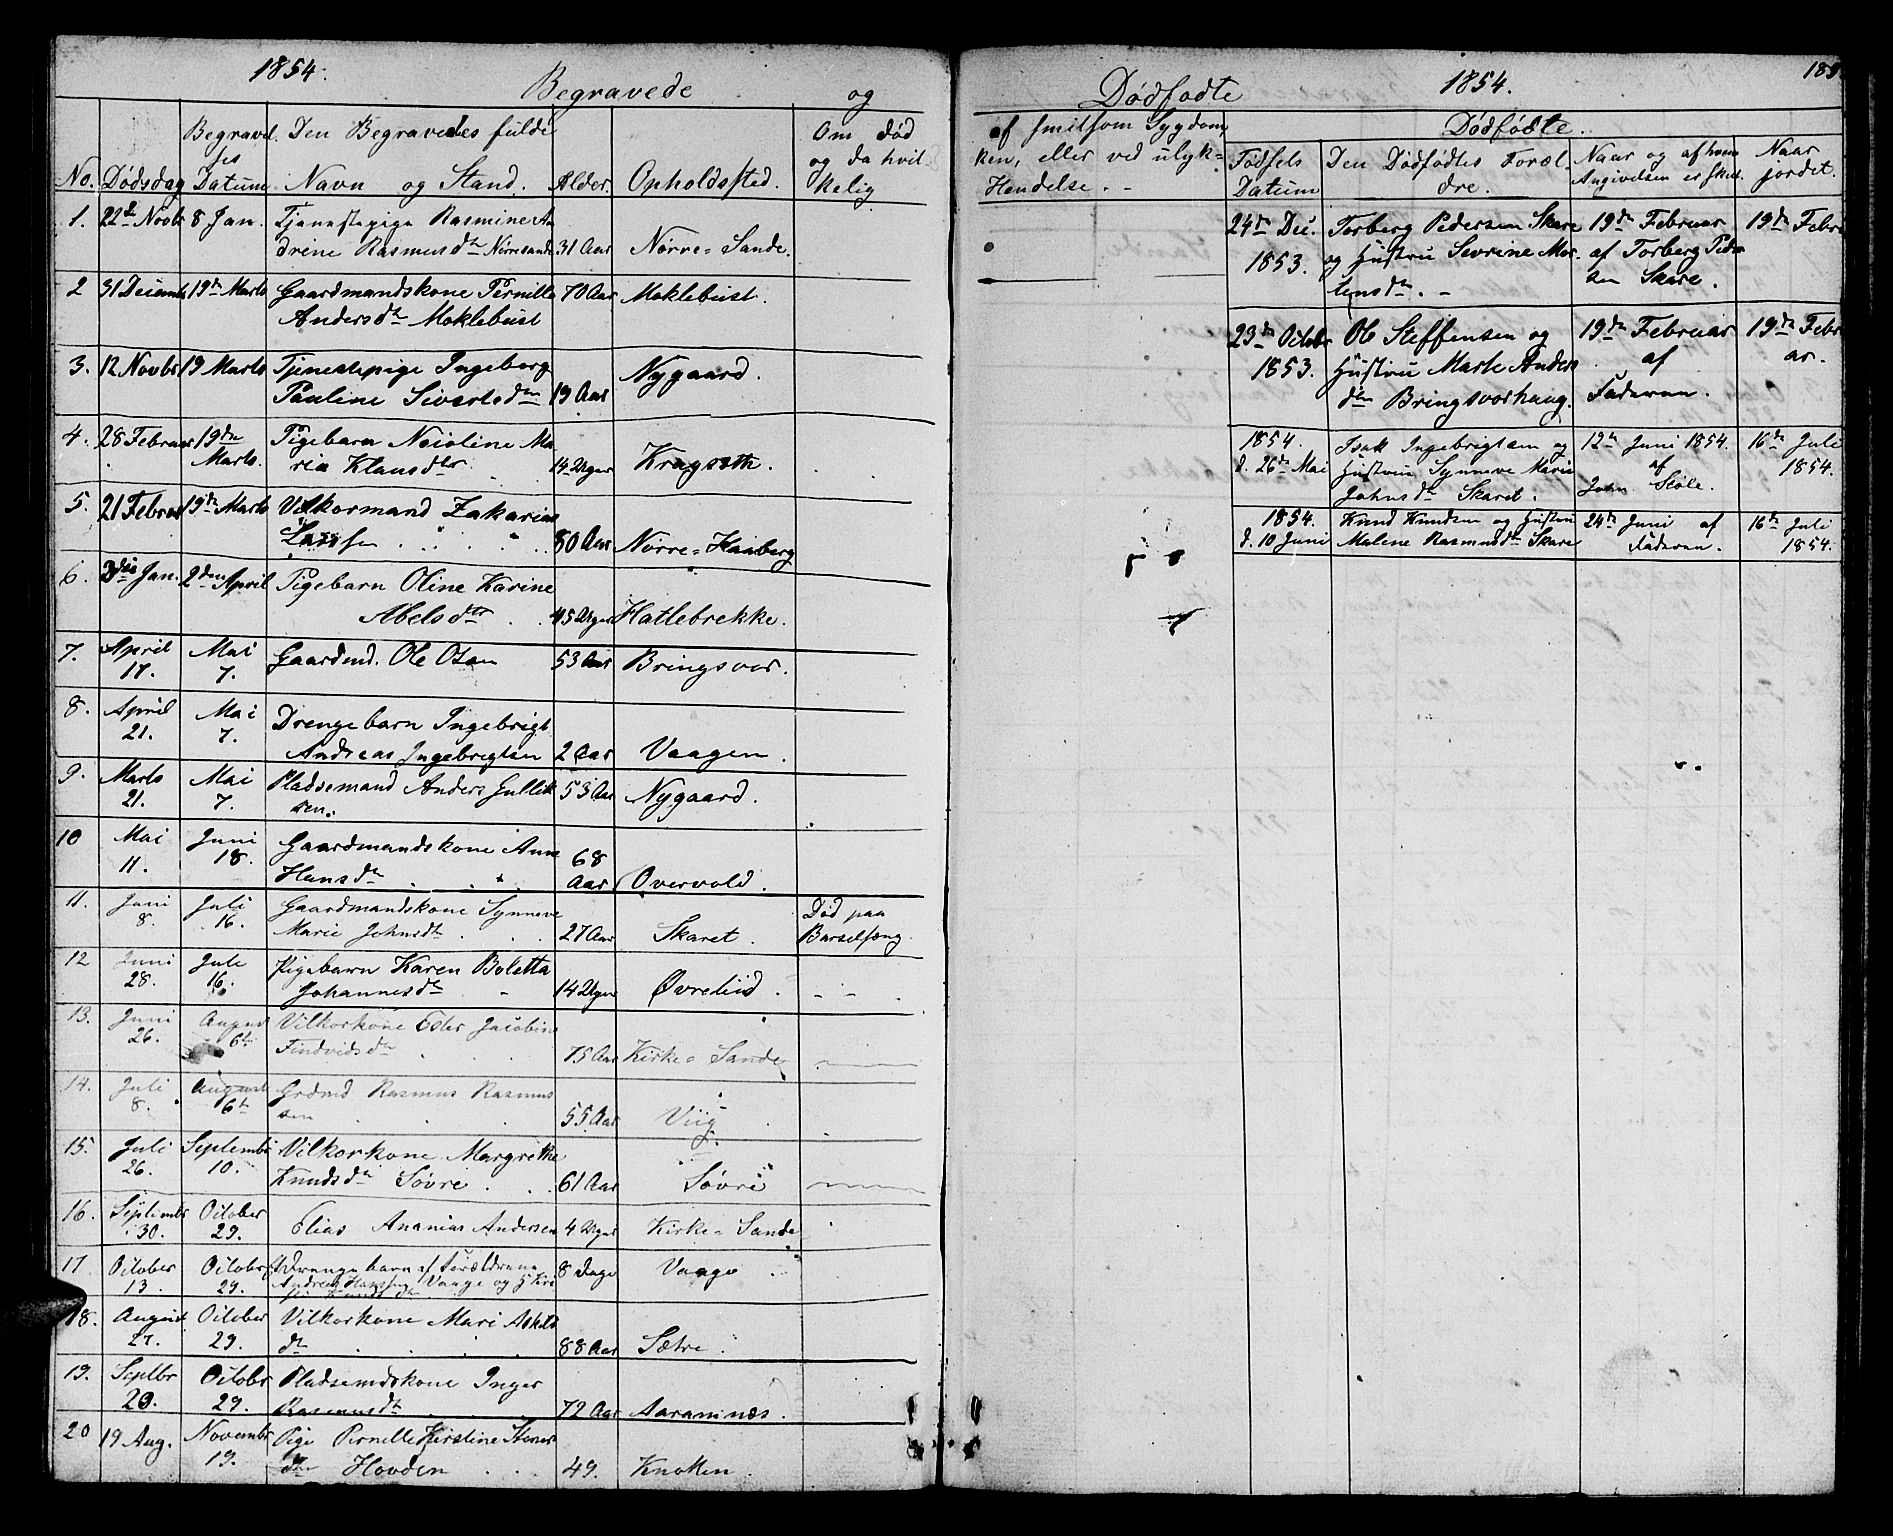 1854.
Begravede og
No. Dødsdag Begravelses Datum Den Begravedes fulde Navn og Stand. Alder. Opholdssted. Om død og da hvilkelig
1. 22de Novbr 8 Jan. Tjenestepige Rasmine An
drine Rasmusdtr Nörresande 31 Aar Nörre=Sande.
2 31 Decemb 19de Marts Gaardmandskone Pernille 70 Aar Moklebust.
Andersdtr Moklebust
3. 12 Novbr 19 Marts Tjenestepige Ingeborg
Pauline Sivertsdtr 19 Aar Nygaard.
4. 28 Februar 19de Marts. Pigebarn Nicoline Ma
ria Klausdtr 14 Uger Kragseth.
5. 21 Februar 19de Marts Vilkormand Zakarias
Larsen 80 Aar Nörre=Haaberg
6. 3die Jan. 2den April Pigebarn Oline Karine
Abelsdtr 45 Uger Hatlebrekke.
7. April 17. Mai 7. Gaardmd. Ole Olsen 53 Aar Bringsvor.
8. April 21. Mai 7. Drengebarn Ingebrigt
Andreas Ingebrigtsen 2 Aar Vaagen.
9. Marts 21. Mai 7. Pladsemand Anders Gullik
sen. 53 Aar Nygaard.
10 Mai 11. Juni 18. Gaardmandskone Anne
Hansdtr 68 Aar Overvold.
11. Juni 8. Juli 16. Gaardmandskone Synneve
Marie Johnsdtr 27 Aar Skaret. Död paa Barselseng.
12 Juni 28. Juli 16. Pigebarn Karen Boletta
Johannesdtr 14 Uger Øvreliid.
13. Juni 26. August 6te Vilkorkone Ester Jacobine
Findvidsdtr 75 Aar Kirke=Sande
14. Juli 8. August 6te Grdmd Rasmus Rasmus
sen 55 Aar Viig
15. Juli 26. Septembr 10. Vilkorkone Margrethe
Knudsdtr Søvre 61 Aar Søvre
16. Septembr 30. October 29. Elias Ananias Andersen 4 Uger Kirke=Sande
17 October 13. October 29. Drengebarn af Forældrene
Andreas Hansen Vaage og H. 8 Dage Vaage
18. August 27. October 29. Vilkorkone Mari Askils
dtr 88 Aar Sætre.
19. Septbr 20. Octobr 29. Pladsemdskone Inger
Rasmusdtr 72 Aar Aaramnæs.
20 19 Aug. Novembr 19. Pige Pernelle Kirstine Steners
dtr Hovden 49. Knotten.
Dödfødte 1854. 185
af smitsom Sygdom,
ken, eller ved ulyk=
Hendelse.
Dødfødte.
Fødsels Datum Den Dødfødtes Foræl
dre. Naar og af hvem Angivelsen er skeet Naar jordet.
24de Dec. 1853. Torberg Pedersen Skare
og Hustru Sevrine Mor
tensdtr. 19de Februar af Torberg Peder
sen Skare. 19de Febru
23de Octobr 1853. Ole Steffensen og
Hustru Marte Anders
dtr Bringsvorhaug. 19de Februar af Faderen. 19de Febru
ar.
1854. d. 26de Mai Isak Ingebrigtsen og
Hustru Synneve Marie
Johnsdtr Skaret. 12te Juni 1854. af John Støle. 16de Juli 1854.
1854. d. 10 Juni Knud Knudsen og Hustru
Malene Rasmusdtr Skare 24de Juni af Faderen. 16de Juli 1854.